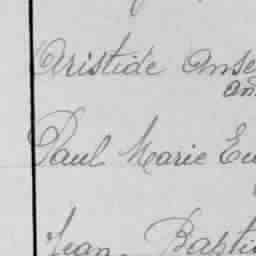 Aristide Anse
An
Paul Marie Eu
Jean Bapti